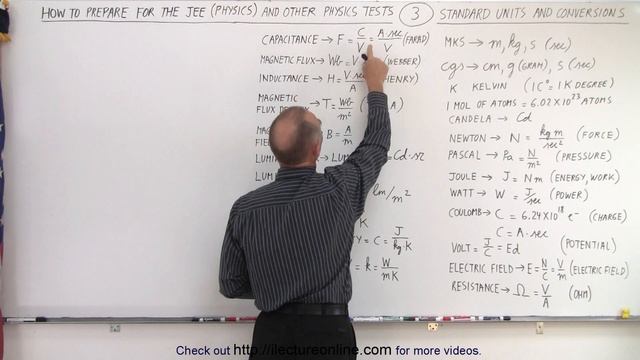 HOW TO PREPARE FOR THE JEE (PHYSICS) AND OTHER PHYSICS TESTS ③ STANDARD UNITS AND CONVERSIONS
CAPACITANCE → F = C/V = A·sec/V (FARAD)
MAGNETIC FLUX → Wb = V (WEBBER)
INDUCTANCE → H = V sec/A (HENRY)
MAGNETIC FLUX → T = Wb/m² A)
B = A/m
LUM = Cd·sr
lm/m²
K
= C = J/kg·K
= k = W/mK
MKS → m, kg, s (sec)
cgs → cm, g (GRAM), s (sec)
K KELVIN (1C° = 1K DEGREE)
1 MOL OF ATOMS = 6.02 X 10²³ ATOMS
CANDELA → Cd
NEWTON → N = kg m/sec² (FORCE)
PASCAL → Pa = N/m² (PRESSURE)
JOULE → J = Nm (ENERGY, WORK)
WATT → W = J/sec (POWER)
COULOMB → C = 6.24X10¹⁸ e⁻ (CHARGE)
C = A·sec
VOLT = J/C = Ed (POTENTIAL)
ELECTRIC FIELD → E = N/C = V/m (ELECTRIC FIELD)
RESISTANCE → Ω = V/A (OHM)
Check out http://ilectureonline.com for more videos.